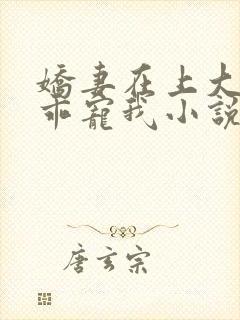 嬌妻在上大
乖寵我小說
唐玄宗